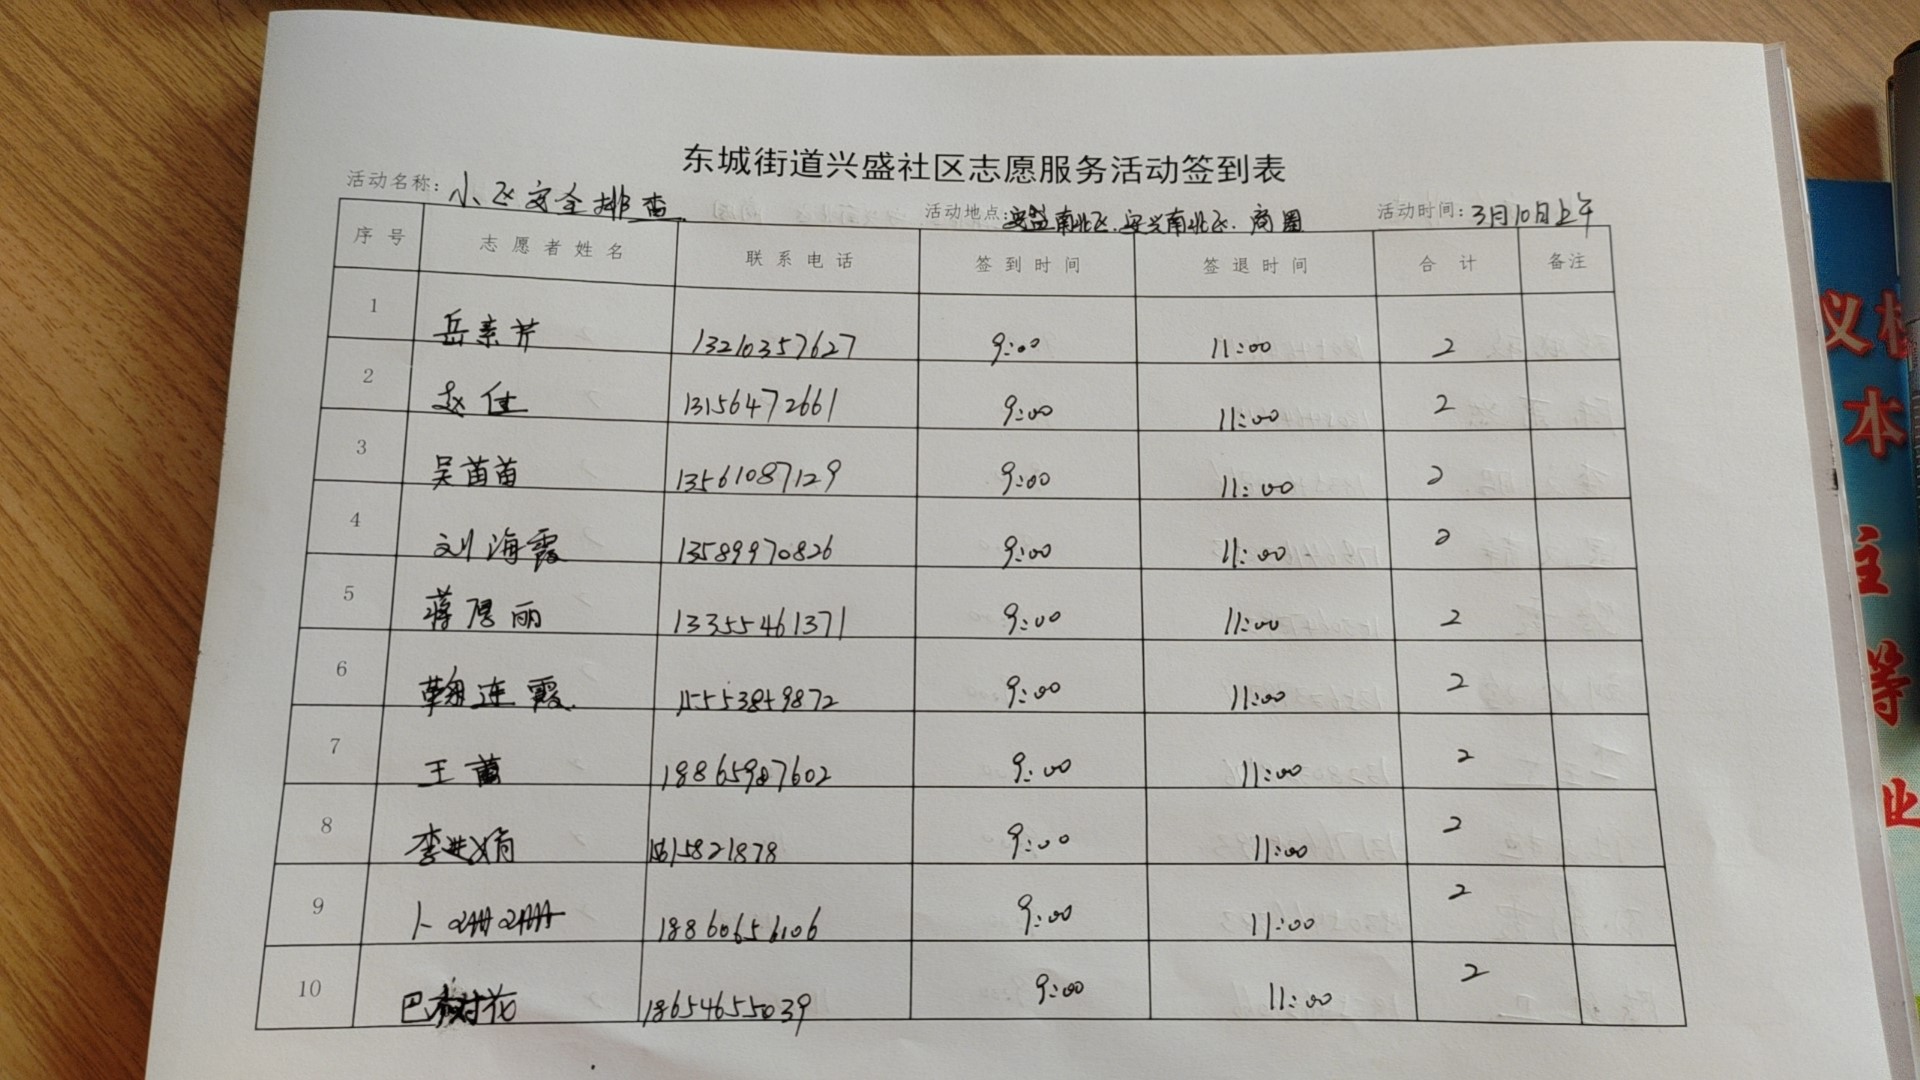 东城街道兴盛社区志愿服务活动签到表
活动名称: 小区安全排查 活动地点:安盛南北区.安兴南北区.商圈 活动时间:3月10日上午
序号 志愿者姓名 联系电话 签到时间 签退时间 合计 备注
1 岳素芹 13210357627 9:00 11:00 2
2 赵佳 13156472661 9:00 11:00 2
3 吴苗苗 13561087129 9:00 11:00 2
4 刘海霞 13589970826 9:00 11:00 2
5 蒋厚丽 13355461371 9:00 11:00 2
6 翰连霞 15553849872 9:00 11:00 2
7 王 18865987602 9:00 11:00 2
8 李娟 15615821878 9:00 11:00 2
9 卜姗姗 18860656106 9:00 11:00 2
10 巴树花 18654655039 9:00 11:00 2
义
本
主
等
业